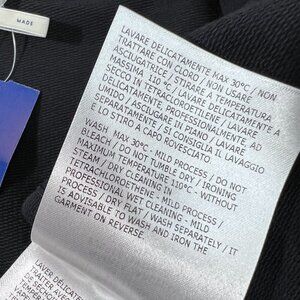 MADE
LAVARE DELICATAMENTE MAX 30°C / NON
TRATTARE CON CLORO / NON USARE
ASCIUGATRICE / STIRARE A TEMPERATURA
MASSIMA 110° / LAVARE DELICATAMENTE A
SECCO IN TETRACLOROETILENE / LAVARE
DELICATAMENTE, PROFESSIONALMENTE, AD
SEPARATAMENTE / SI CONSIGLIA IL LAVAGGIO
E LO STIRO A CAPO ROVESCIATO
WASH MAX 30°C - MILD PROCESS / DO NOT
BLEACH / DO NOT TUMBLE DRY / IRONING
MAXIMUM TEMPERATURE 110°C - WITHOUT
STEAM / DRY CLEANING IN
TETRACHLOROETHENE - MILD PROCESS /
PROFESSIONAL WET CLEANING - MILD
PROCESS / DRY FLAT / WASH SEPARATELY / IT
IS ADVISABLE TO WASH AND IRON THE
GARMENT ON REVERSE
LAVER DELICATEMENT
TRAITER AVEC
DE SÉCHO
TEMPÉR
VAPE